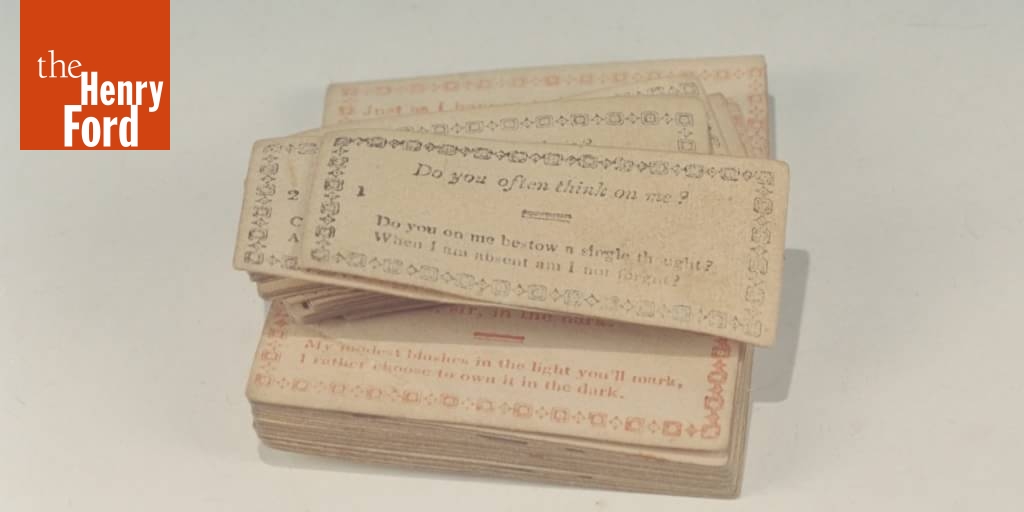 the
Henry
Ford
Just as I
Do you often think on me?
1
Do you on me bestow a single thought?
When I am absent am I not forgot?
2
C
A
in the dark.
My modest blushes in the light you'll mark,
I rather choose to own it in the dark.